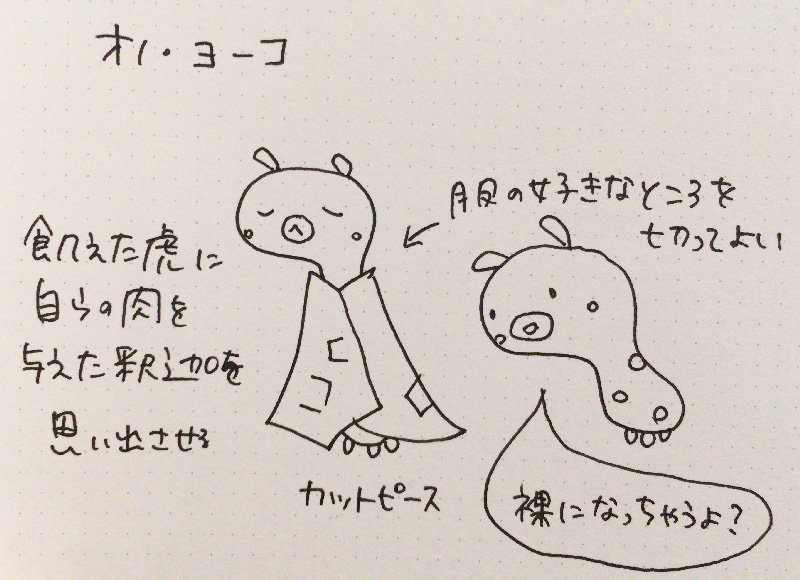 オノ・ヨーコ
服の好きなところを
切ってよい
飢えた虎に
自らの肉を
与えた釈迦を
思い出させる
カットピース
裸になっちゃうよ?